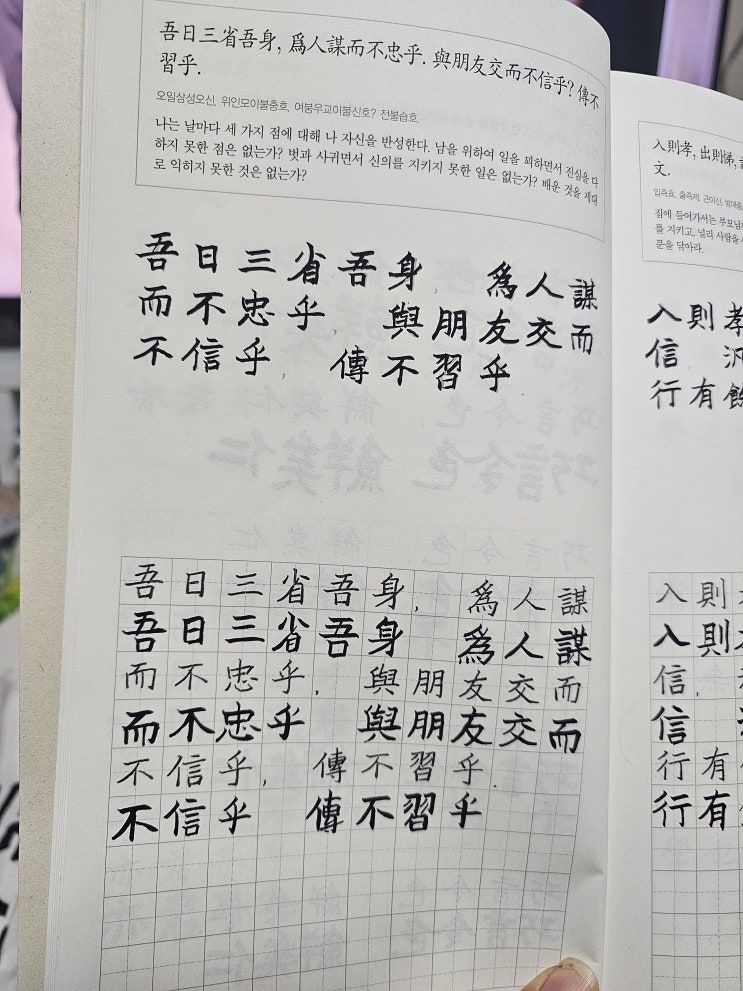 吾日三省吾身, 爲人謀而不忠乎. 與朋友交而不信乎? 傳不
習乎.
오일삼성오신, 위인모이불충호, 여붕우교이불신호? 전불습호.
나는 날마다 세 가지 점에 대해 나 자신을 반성한다. 남을 위하여 일을 꾀하면서 진실을 다
하지 못한 점은 없는가? 벗과 사귀면서 신의를 지키지 못한 일은 없는가? 배운 것을 제대
로 익히지 못한 것은 없는가?
吾日三省吾身, 爲人謀
而不忠乎, 與朋友交而
不信乎, 傳不習乎
吾日三省吾身, 爲人謀
吾日三省吾身 爲人謀
而不忠乎, 與朋友交而
而不忠乎 與朋友交而
不信乎, 傳不習乎.
不信乎 傳不習乎
入則孝, 出則悌,
文.
입즉효, 출즉제, 근이신,
집에 들어가서는 부모님
를 지키고, 널리 사람을
문을 닦아라.
入則孝
信 汎
行有餘
入則
入則
信,
信
行有
行有